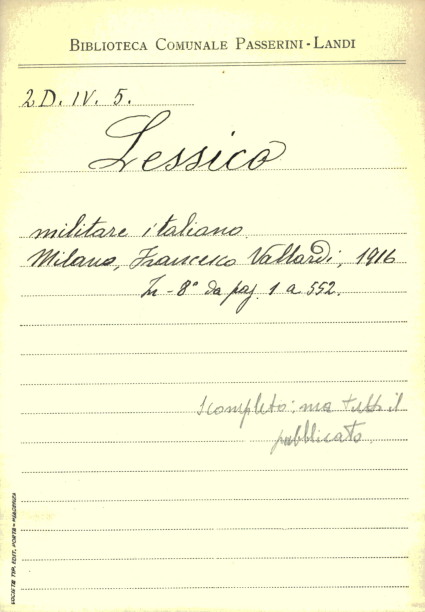 BIBLIOTECA COMUNALE PASSERINI-LANDI
2D. IV. 5.
Lessico
militare italiano.
Milano, Francesco Vallardi, 1916
In-8° da pag. 1 a 552.
Scompleto: ma tutto il
pubblicato.
SOCIETÀ TIP. EDIT. PORTA - PIACENZA